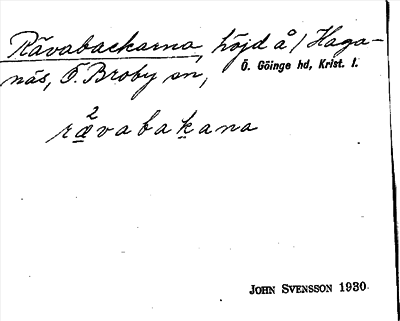 Rävabackarna, höjd å / Haga-
näs, Ö. Broby sn, Ö. Göinge hd, Krist. l.
2
rävabakana
JOHN SVENSSON 1930